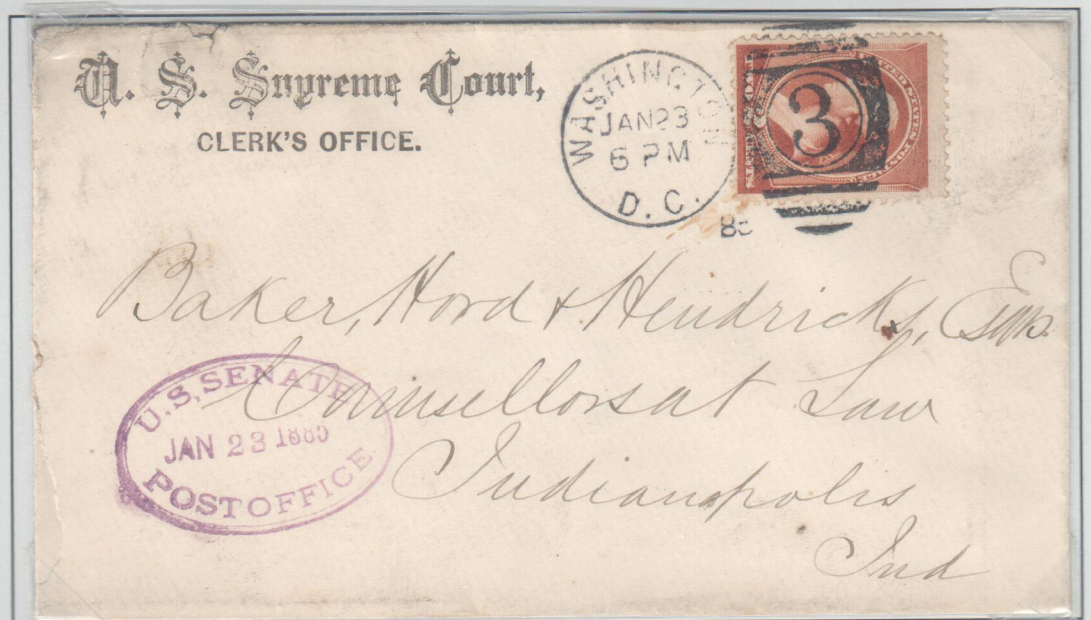 U. S. Supreme Court,
CLERK'S OFFICE.
WASHINGTON
JAN 23
6 PM
D. C.
85
3
UNITED STATES POSTAGE
Baker, Hord & Hendricks, Esqrs.
Counsellors at Law
Indianapolis
Ind
U.S. SENATE
JAN 23 1885
POST OFFICE